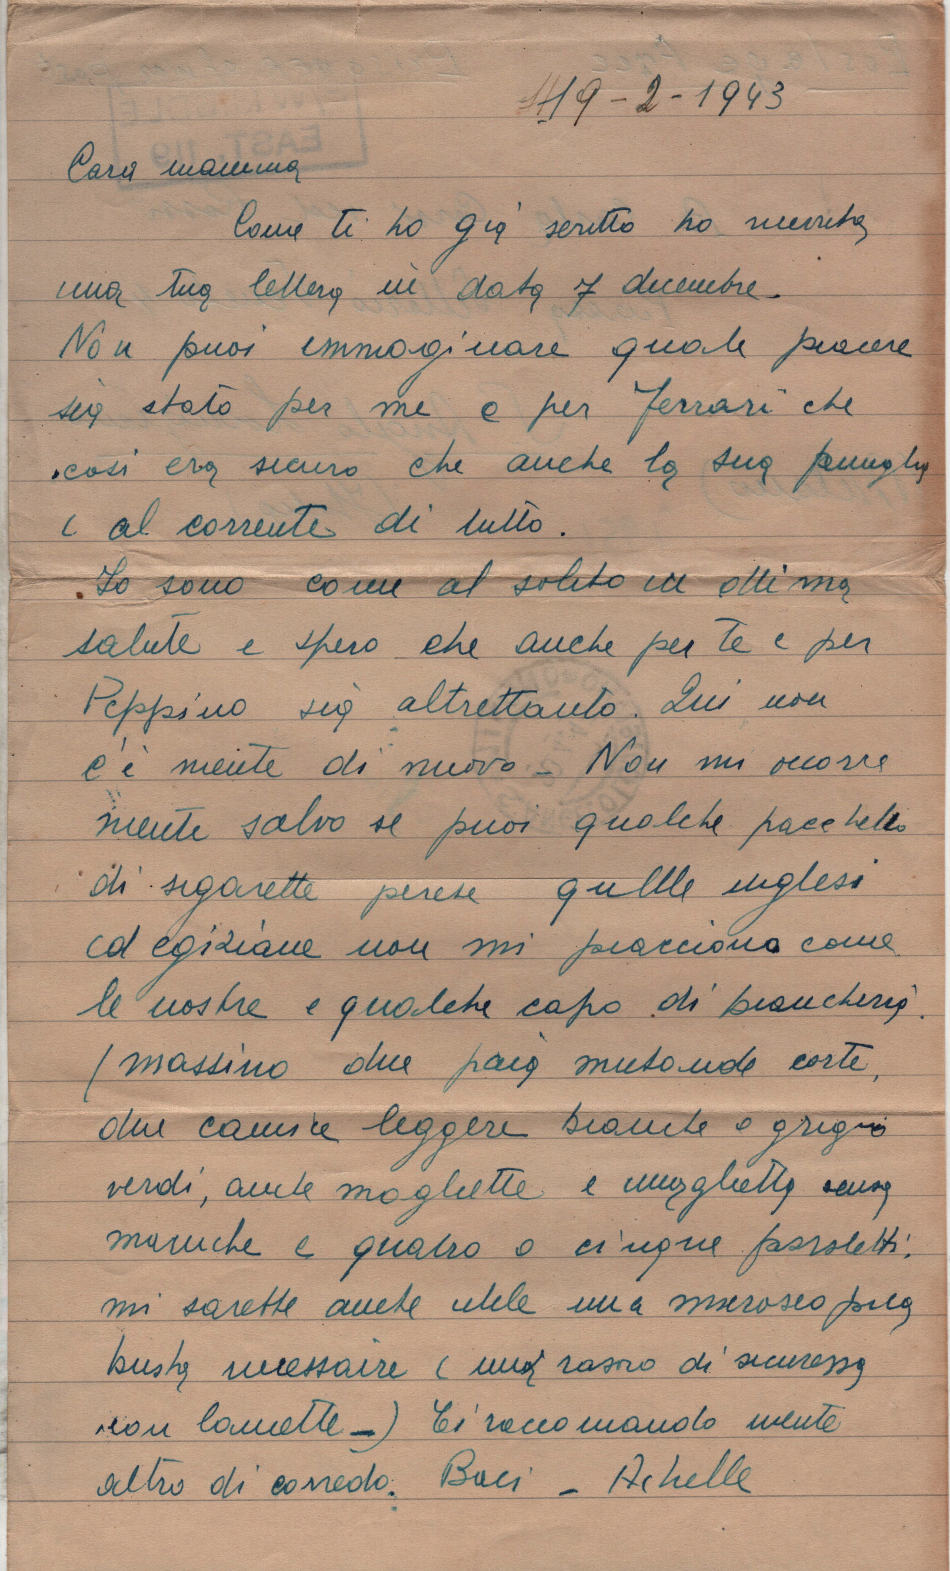 19-2-1943
Cara mamma
Come ti ho già scritto ho ricevuta
una tua lettera in data 7 dicembre.
Non puoi immaginare quale piacere
sia stato per me e per Ferrari che
così era sicuro che anche la sua famiglia
è al corrente di tutto.
Io sono come al solito in ottima
salute e spero che anche per te e per
Peppino sia altrettanto. Qui non
c'è niente di nuovo - Non mi occorre
niente salvo se puoi qualche pacchetto
di sigarette perese quelle inglesi
ed egiziane non mi piacciono come
le nostre e qualche capo di biancheria.
(massimo due paia mutande corte,
due camicie leggere bianche o grigio
verdi, anche magliette e maglietta senza
maniche e quatro o cinque fazzoletti.
mi sarebbe anche utile una
busta necessaire ( rasoio di sicurezza
con lamette -) Ti raccomando niente
altro di corredo. Baci - Achille
EAST. 119